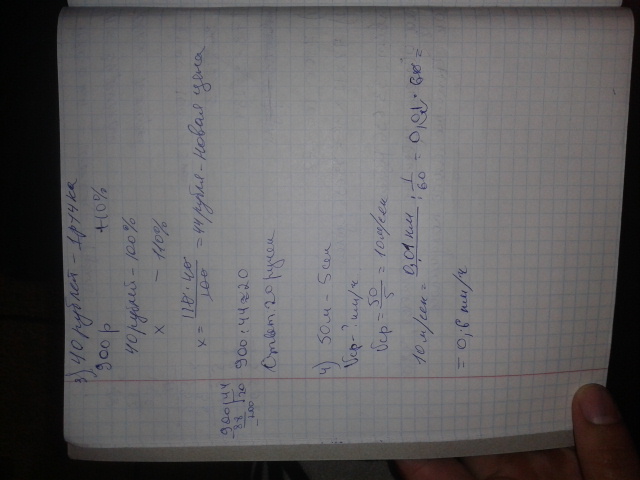 3) 40 рублей - 1 ручка
900 р +10%
40 рублей - 100%
x - 110%
x = 110 · 40 / 100 = 44 рубля - новая цена
900 : 44 ≈ 20
900 | 44
88 | 20
- 200
Ответ: 20 ручек
4) 50 м - 5 сек
Vср - ? км/ч
Vср = 50 / 5 = 10 м/сек
10 м/сек = 0,01 км : 1/60 = 0,01 · 60 =
= 0,6 км/ч